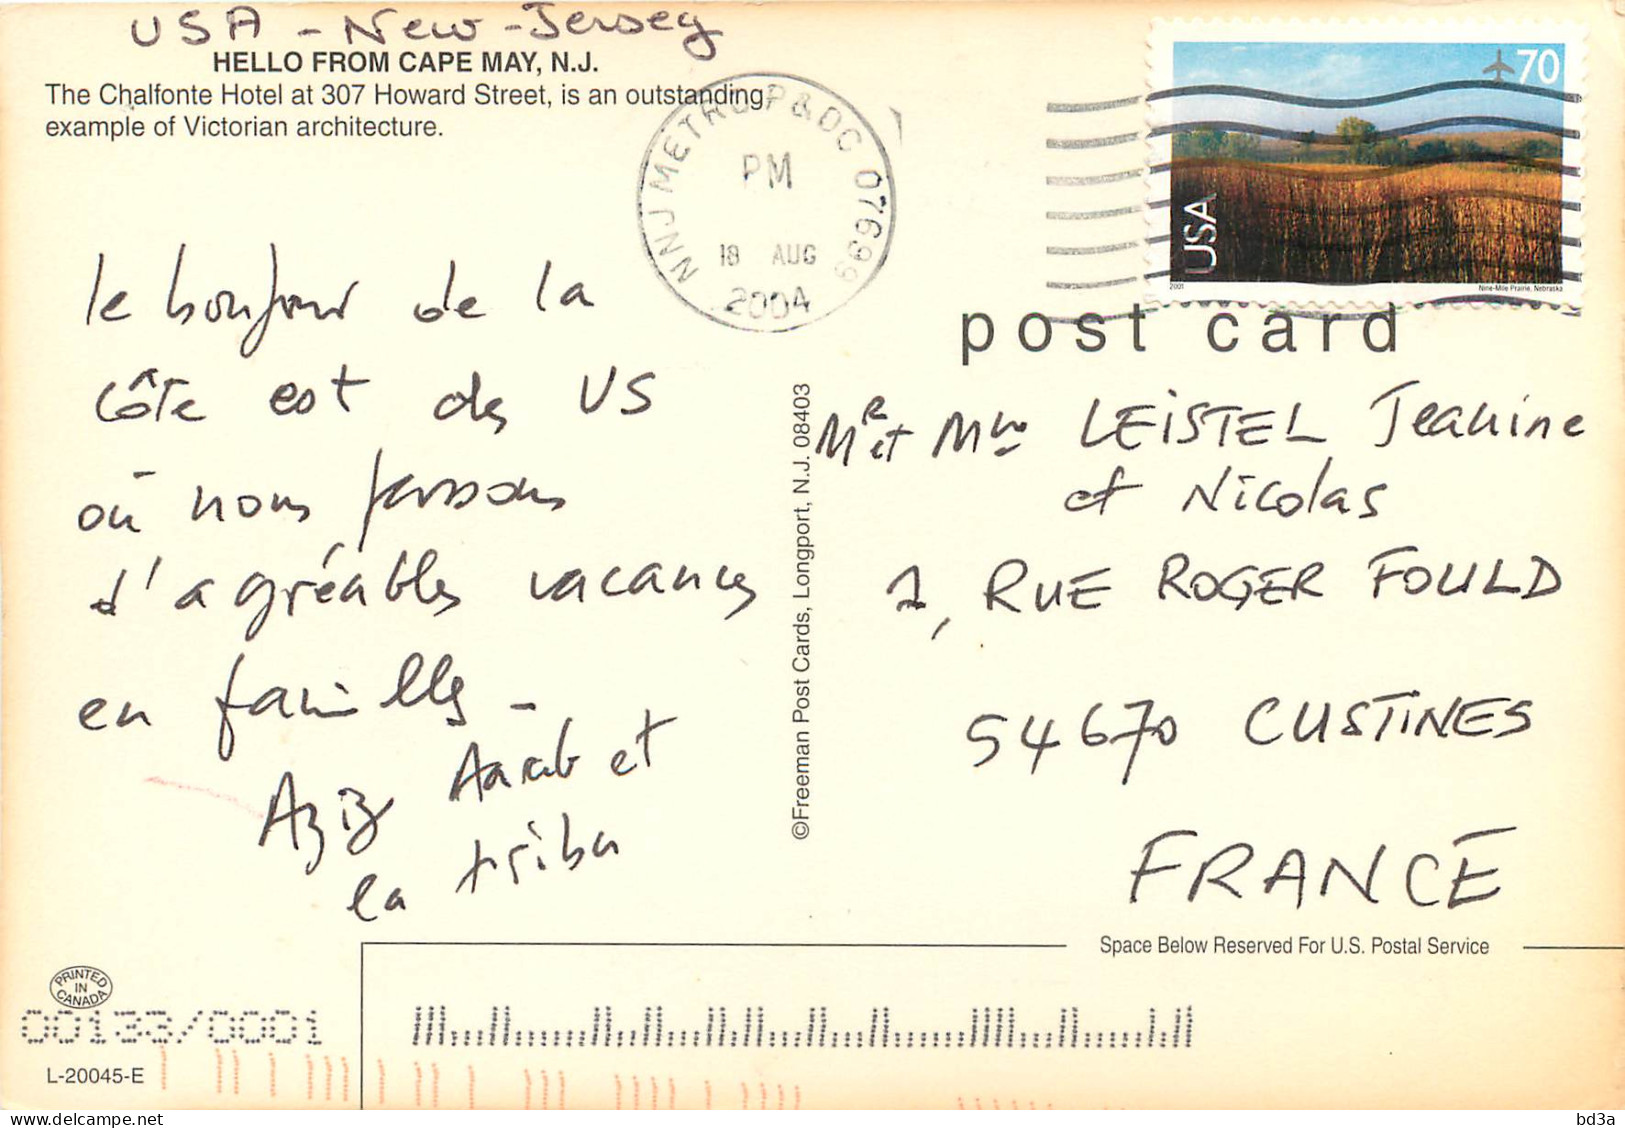 USA - New-Jersey
HELLO FROM CAPE MAY, N.J.
The Chalfonte Hotel at 307 Howard Street, is an outstanding
example of Victorian architecture.
NNJ METRO P&DC 07699
PM
18 AUG
2004
70
USA
2001
Nine-Mile Prairie, Nebraska
post card
le bonjour de la
côte est des US
où nous passons
d'agréables vacances
en famille -
Aziz Aarab et
la tribu
©Freeman Post Cards, Longport, N.J. 08403
Mr et Mme LEISTEL Jeanine
et Nicolas
2, RUE ROGER FOULD
54670 CUSTINES
FRANCE
Space Below Reserved For U.S. Postal Service
PRINTED
IN
CANADA
00133/0001
L-20045-E
bd3a